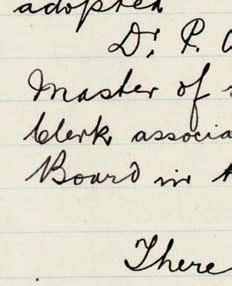 adopted
Dr. P.
Master of
Clerk associa
Board in
There